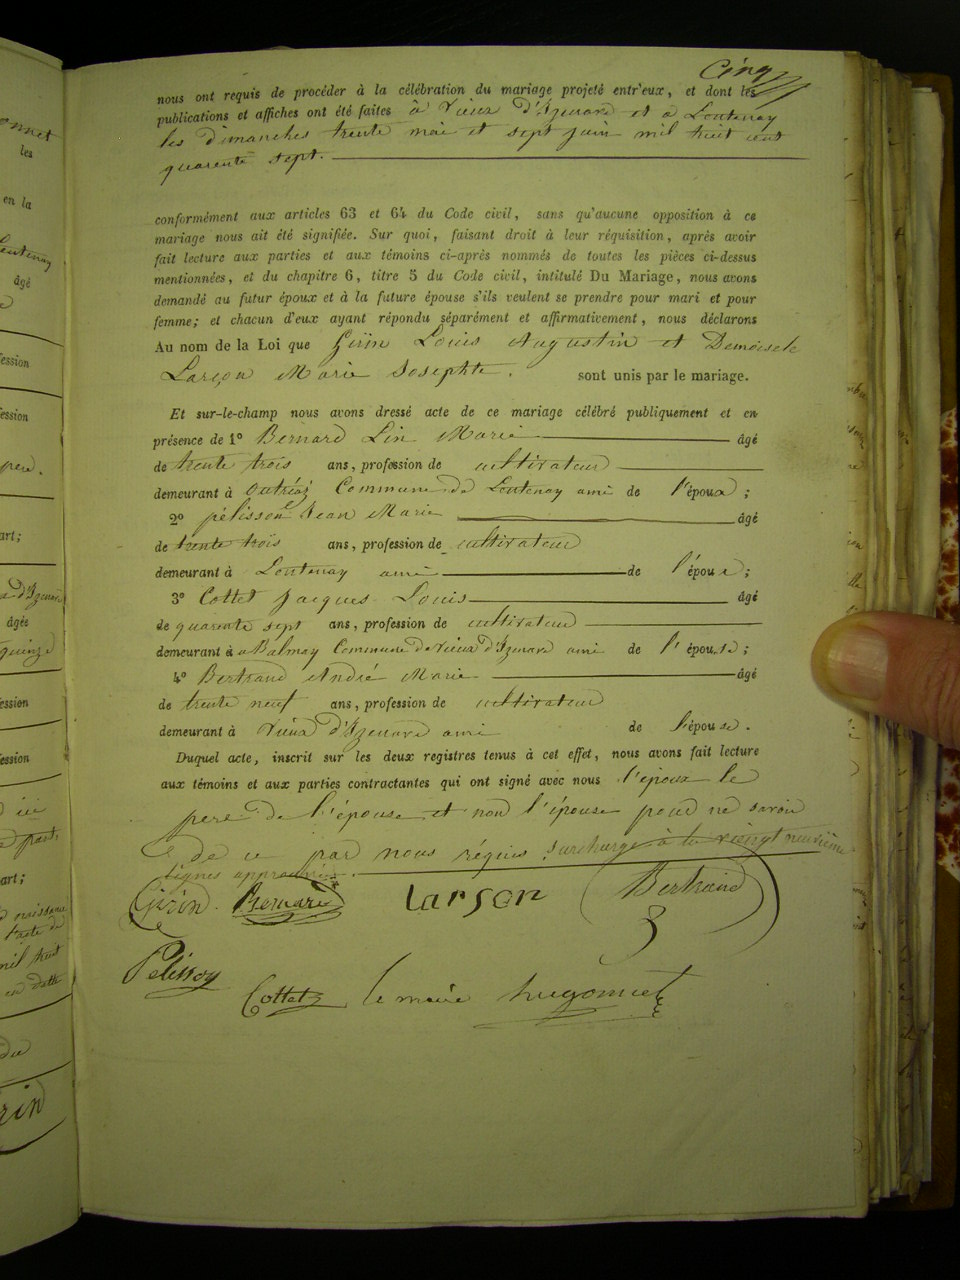 Cinq
nous ont requis de procéder à la célébration du mariage projeté entr'eux, et dont les
publications et affiches ont été faites à Vieux d'Izenave et à Lantenay
les dimanches trente mai et sept juin mil huit cent
quarente sept.
conformément aux articles 63 et 64 du Code civil, sans qu'aucune opposition à ce
mariage nous ait été signifiée. Sur quoi, faisant droit à leur réquisition, après avoir
fait lecture aux parties et aux témoins ci-après nommés de toutes les pièces ci-dessus
mentionnées, et du chapitre 6, titre 5 du Code civil, intitulé Du Mariage, nous avons
demandé au futur époux et à la future épouse s'ils veulent se prendre pour mari et pour
femme; et chacun d'eux ayant répondu séparément et affirmativement, nous déclarons
Au nom de la Loi que Girin Louis Augustin et Demoiselle
Larçon Marie Josephte. sont unis par le mariage.
Et sur-le-champ nous avons dressé acte de ce mariage célébré publiquement et en
présence de 1º Bernard Lin Marie âgé
de trente trois ans, profession de cultivateur
demeurant à Outriaz Commune de Lantenay ami de l'époux;
2º pélisson Jean Marie âgé
de trente trois ans, profession de cultivateur
demeurant à Lantenay ami de l'époux;
3º Cottet Jacques Louis âgé
de quarente sept ans, profession de cultivateur
demeurant à Balmay Commune de Vieux d'Izenave ami de l'épouse;
4º Bertrand André Marie âgé
de trente neuf ans, profession de cultivateur
demeurant à Vieux d'Izenave ami de l'épouse.
Duquel acte, inscrit sur les deux registres tenus à cet effet, nous avons fait lecture
aux témoins et aux parties contractantes qui ont signé avec nous l'époux le
pere de l'épouse et non l'épouse pour ne savoir
de ce par nous réquis. surcharge à la vingt neuvième
lignes approuvée.
Girin Bernard Larson Bertrand
Pelisson
Cottet le maire hugonnet